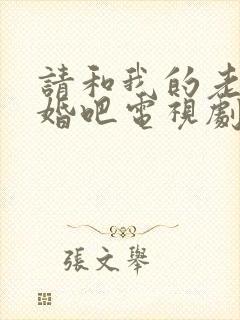 請和我的老
婚吧電視劇
張文舉